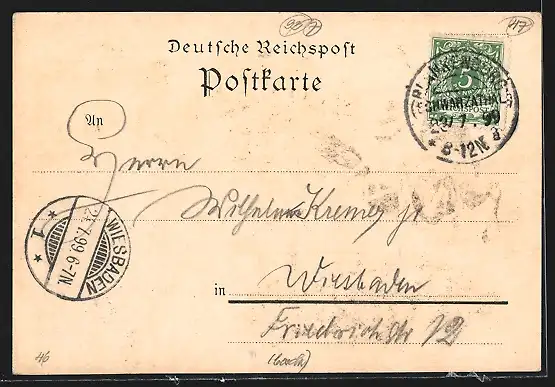 Deutsche Reichspost
Postkarte
BLANKENBURG
SCHWARZATHAL
5
7. 99
8-12N
An
Herrn
Wilhelm Kremer jr
in Wiesbaden
Friedrichstr 12
WIESBADEN
7.99 6-7N.
1
46
47